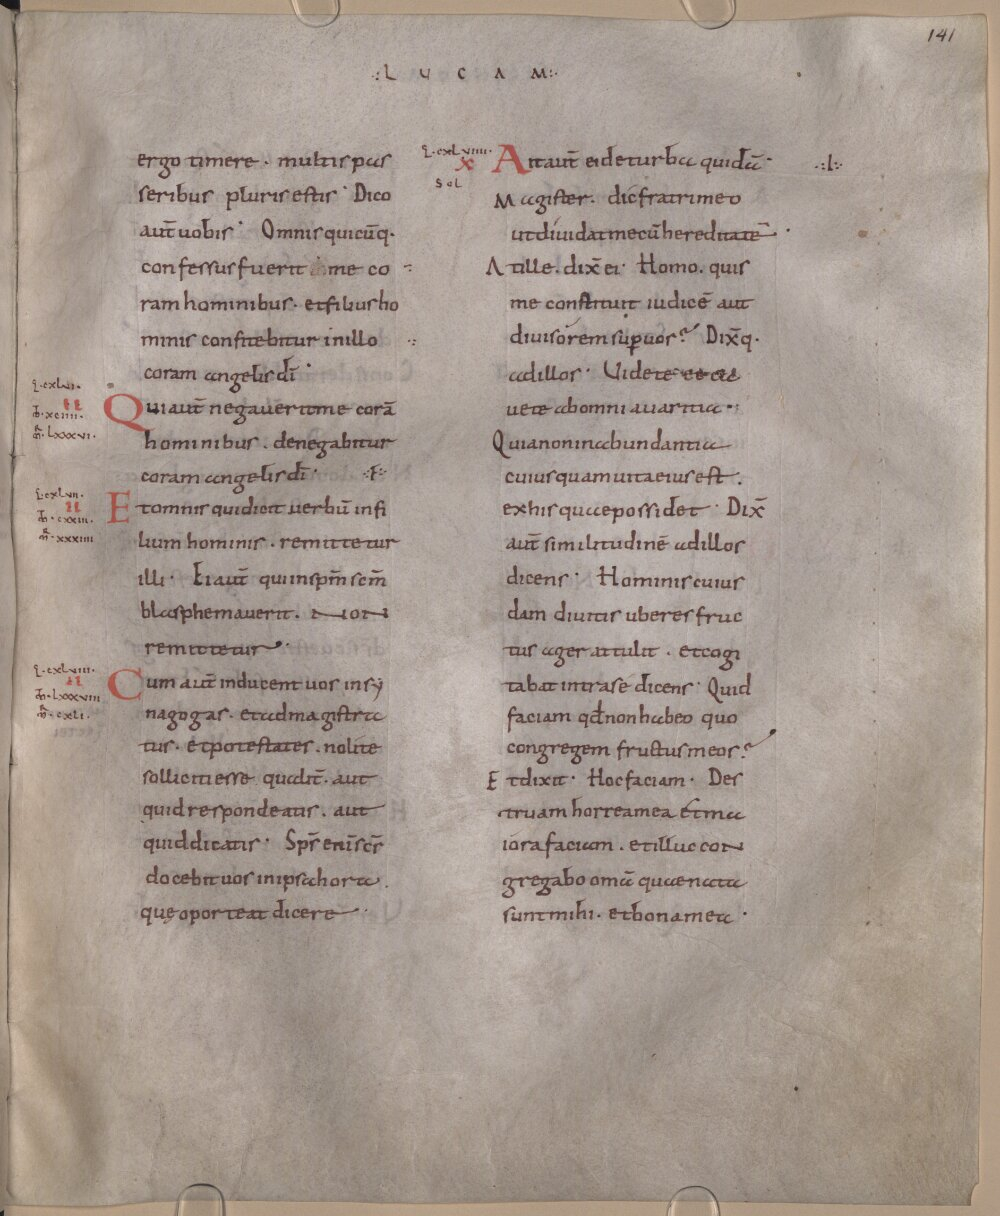 141
·:L U C A M:·
ergo timere · multis pas
seribus pluris estis · Dico
aut̄ uobis · Omnis quicūq·
confessus fuerit me co
ram hominibus · et filius ho
minis confitebitur in illo
coram angelis dī ·
L·cxlvi·
II
Qui aut̄ negauerit me corā
hominibus · denegabitur
coram angelis dī ·
L·cxlvii·
II
Et omnis qui dicit uerbū in fi
lium hominis · remittetur
illi · Ei aut̄ qui in sp̄m sc̄m
blasphemauerit · NON
remittetur ·
L·cxlviii·
II
Cum aut̄ inducent uos in sy
nagogas · et ad magistra
tus · et potestates · nolite
solliciti esse qualit̄ · aut
quid respondeatis · aut
quid dicatis · Sp̄s enī sc̄s
docebit uos in ipsa hora ·
quę oporteat dicere ·
L·cxlviiii·
X
Sol
Ait aut̄ ei de turba quidā ·
Magister · dic fratri meo
ut diuidat mecū hereditatē ·
At ille · dix̄ ei · Homo · quis
me constituit iudicē aut
diuisorem sup uos? Dix̄q·
ad illos · Uidete et ca
uete ab omni auaritia ·
Quia non in abundantia
cuiusquam uita eius est ·
ex his quae possidet · Dix̄
aut̄ similitudinē ad illos
dicens · Hominis cuius
dam diuitis uberes fruc
tus ager attulit · et cogi
tabat intra se dicens · Quid
faciam qd̄ non habeo quo
congregem fructus meos?
Et dixit · Hoc faciam · Des
truam horrea mea et ma
iora faciam · et illuc coN
gregabo omā quae nata
sunt mihi · et bona mea ·